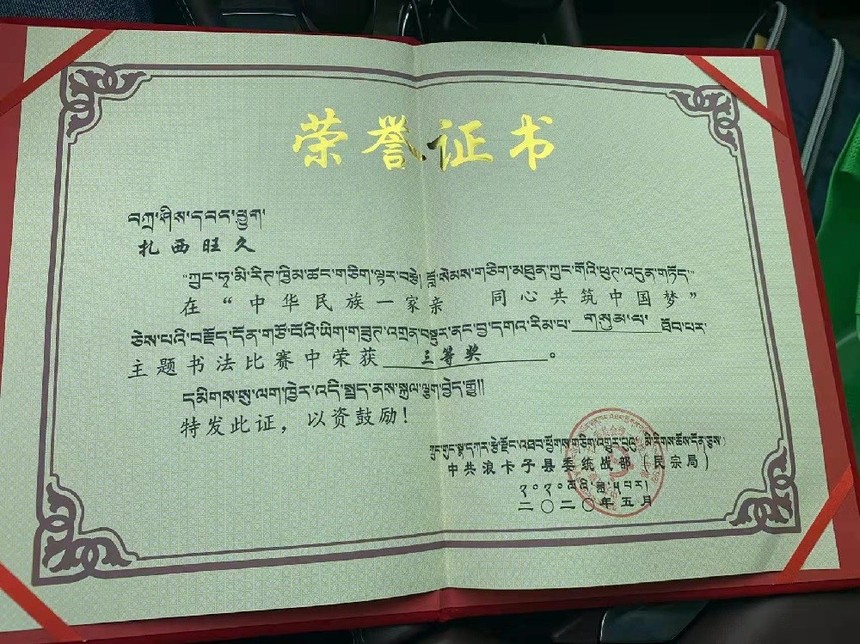 荣誉证书
བཀྲ་ཤིས་དབང་ཕྱུག
扎西旺久
“ཀྲུང་ཧྭ་མི་རིཊ་ཁྱིམ་ཚང་གཅིག་ལྟར་བརྩེ། བློ་སེམས་གཅིག་མཐུན་ཀྲུང་གོའི་ཕུཊ་འདུན་གཏོད་”
在“中华民族一家亲 同心共筑中国梦”
ཅེས་པའི་བརྗོད་དོན་གཙོ་བོའི་ཡིག་གཟུཊ་འགྲན་བསྡུར་ནང་བྱ་དགའ་རིམ་པ་ གསུམ་པ་ ཐོབ་པར་
主题书法比赛中荣获 三等奖 。
དམིགས་སུ་ལག་ཁྱེར་འདི་སྤྲད་ནས་སྐུལ་ལྕག་བྱེད་རྒྱུ།།
特发此证，以资鼓励！
中共浪卡子县委统战部（民宗局）
二〇二〇年五月